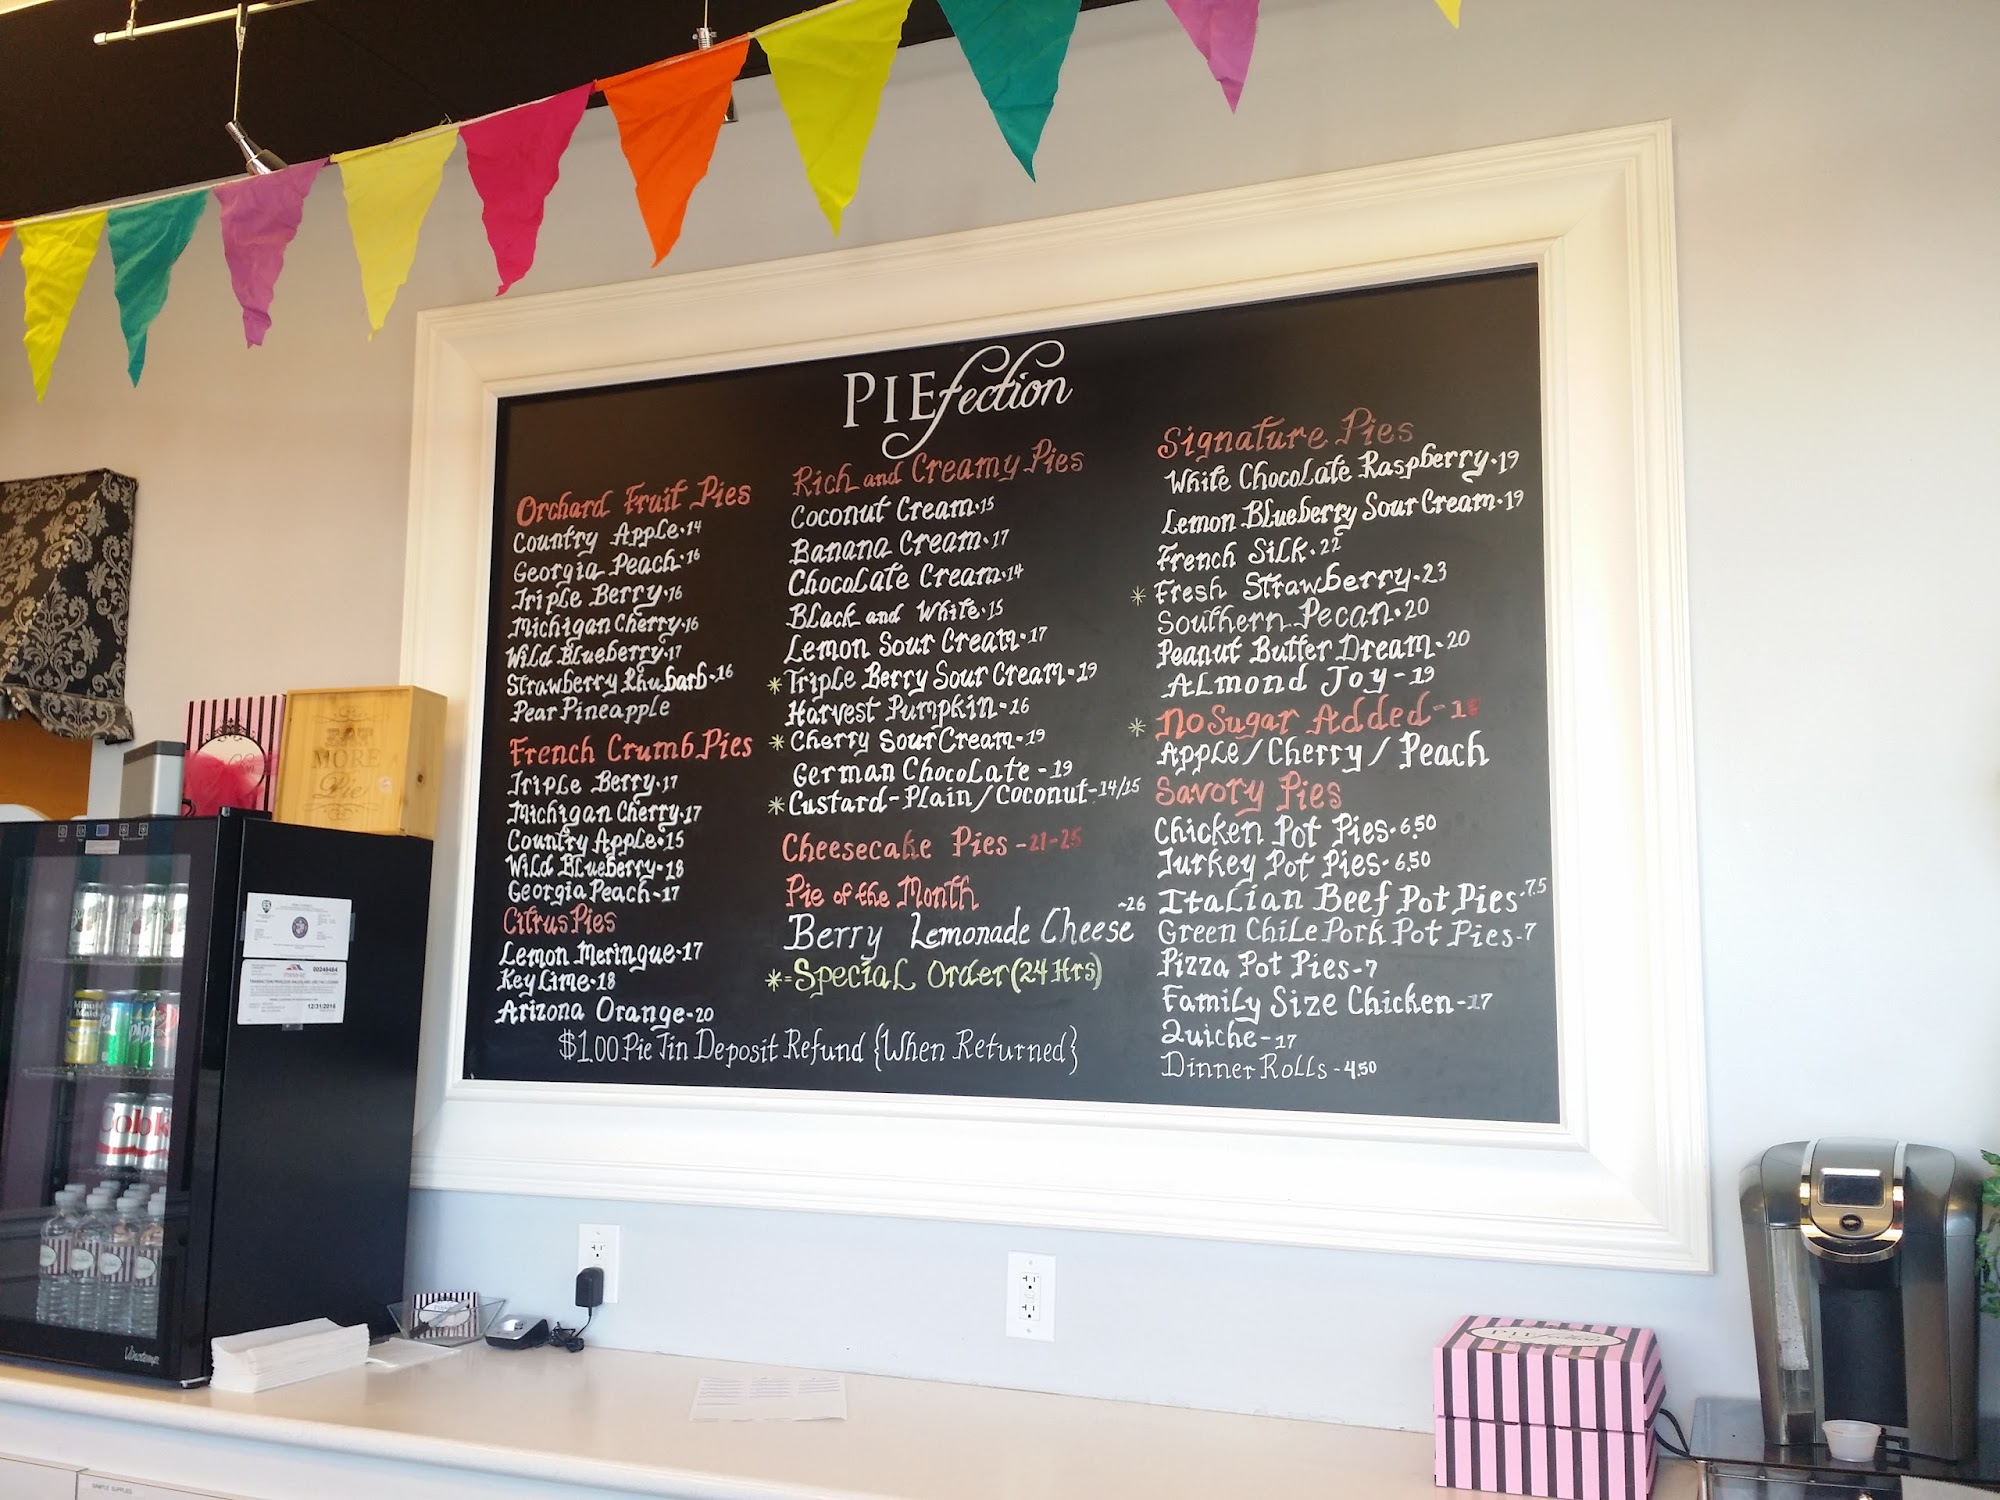 PIEfection
Orchard Fruit Pies
Country Apple • 14
Georgia Peach • 16
Triple Berry • 16
Michigan Cherry • 16
Wild Blueberry • 17
Strawberry Rhubarb - 16
Pear Pineapple
French Crumb Pies
Triple Berry • 17
Michigan Cherry • 17
Country Apple • 15
Wild Blueberry - 18
Georgia Peach - 17
Citrus Pies
Lemon Meringue - 17
Key Lime - 18
Arizona Orange - 20
Rich and Creamy Pies
Coconut Cream • 15
Banana Cream • 17
Chocolate Cream • 14
Black and White • 15
Lemon Sour Cream • 17
* Triple Berry Sour Cream - 19
Harvest Pumpkin - 16
* Cherry Sour Cream - 19
German Chocolate - 19
* Custard - Plain / Coconut - 14/15
Cheesecake Pies - 21-25
Pie of the Month
Berry Lemonade Cheese ~26
* = Special Order (24 Hrs)
$1.00 Pie Tin Deposit Refund {When Returned}
Signature Pies
White Chocolate Raspberry • 19
Lemon Blueberry Sour Cream • 19
French Silk • 22
* Fresh Strawberry • 23
Southern Pecan • 20
Peanut Butter Dream • 20
Almond Joy - 19
* No Sugar Added - 18
Apple / Cherry / Peach
Savory Pies
Chicken Pot Pies - 6.50
Turkey Pot Pies - 6.50
Italian Beef Pot Pies - 7.5
Green Chile Pork Pot Pies - 7
Pizza Pot Pies - 7
Family Size Chicken - 17
Quiche - 17
Dinner Rolls - 4.50
EAT
MORE
Pie
00248484
12/31/2016
Minute
Maid
Vinotemp
PIEfection
SAMPLE SUPPLIES